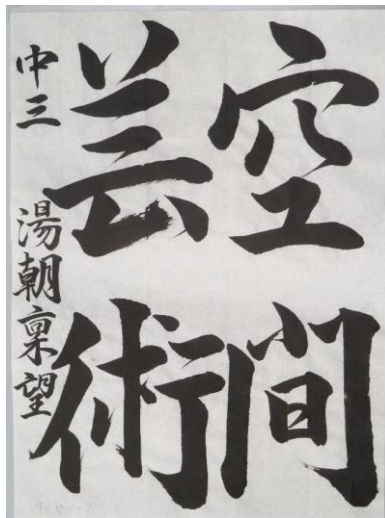 空間
芸術
中三 湯朝稟望